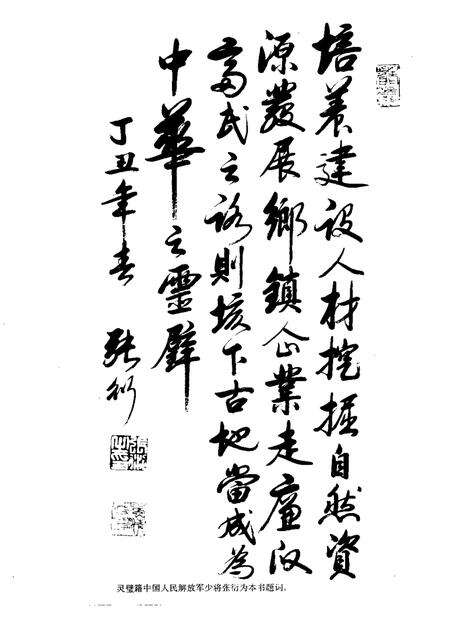 培养建设人材挖掘自然资
源發展鄉鎮企業走廉政
富民之路則垓下古地當成為
中華之靈璧
丁丑年春 張衍
灵璧籍中国人民解放军少将张衍为本书题词。